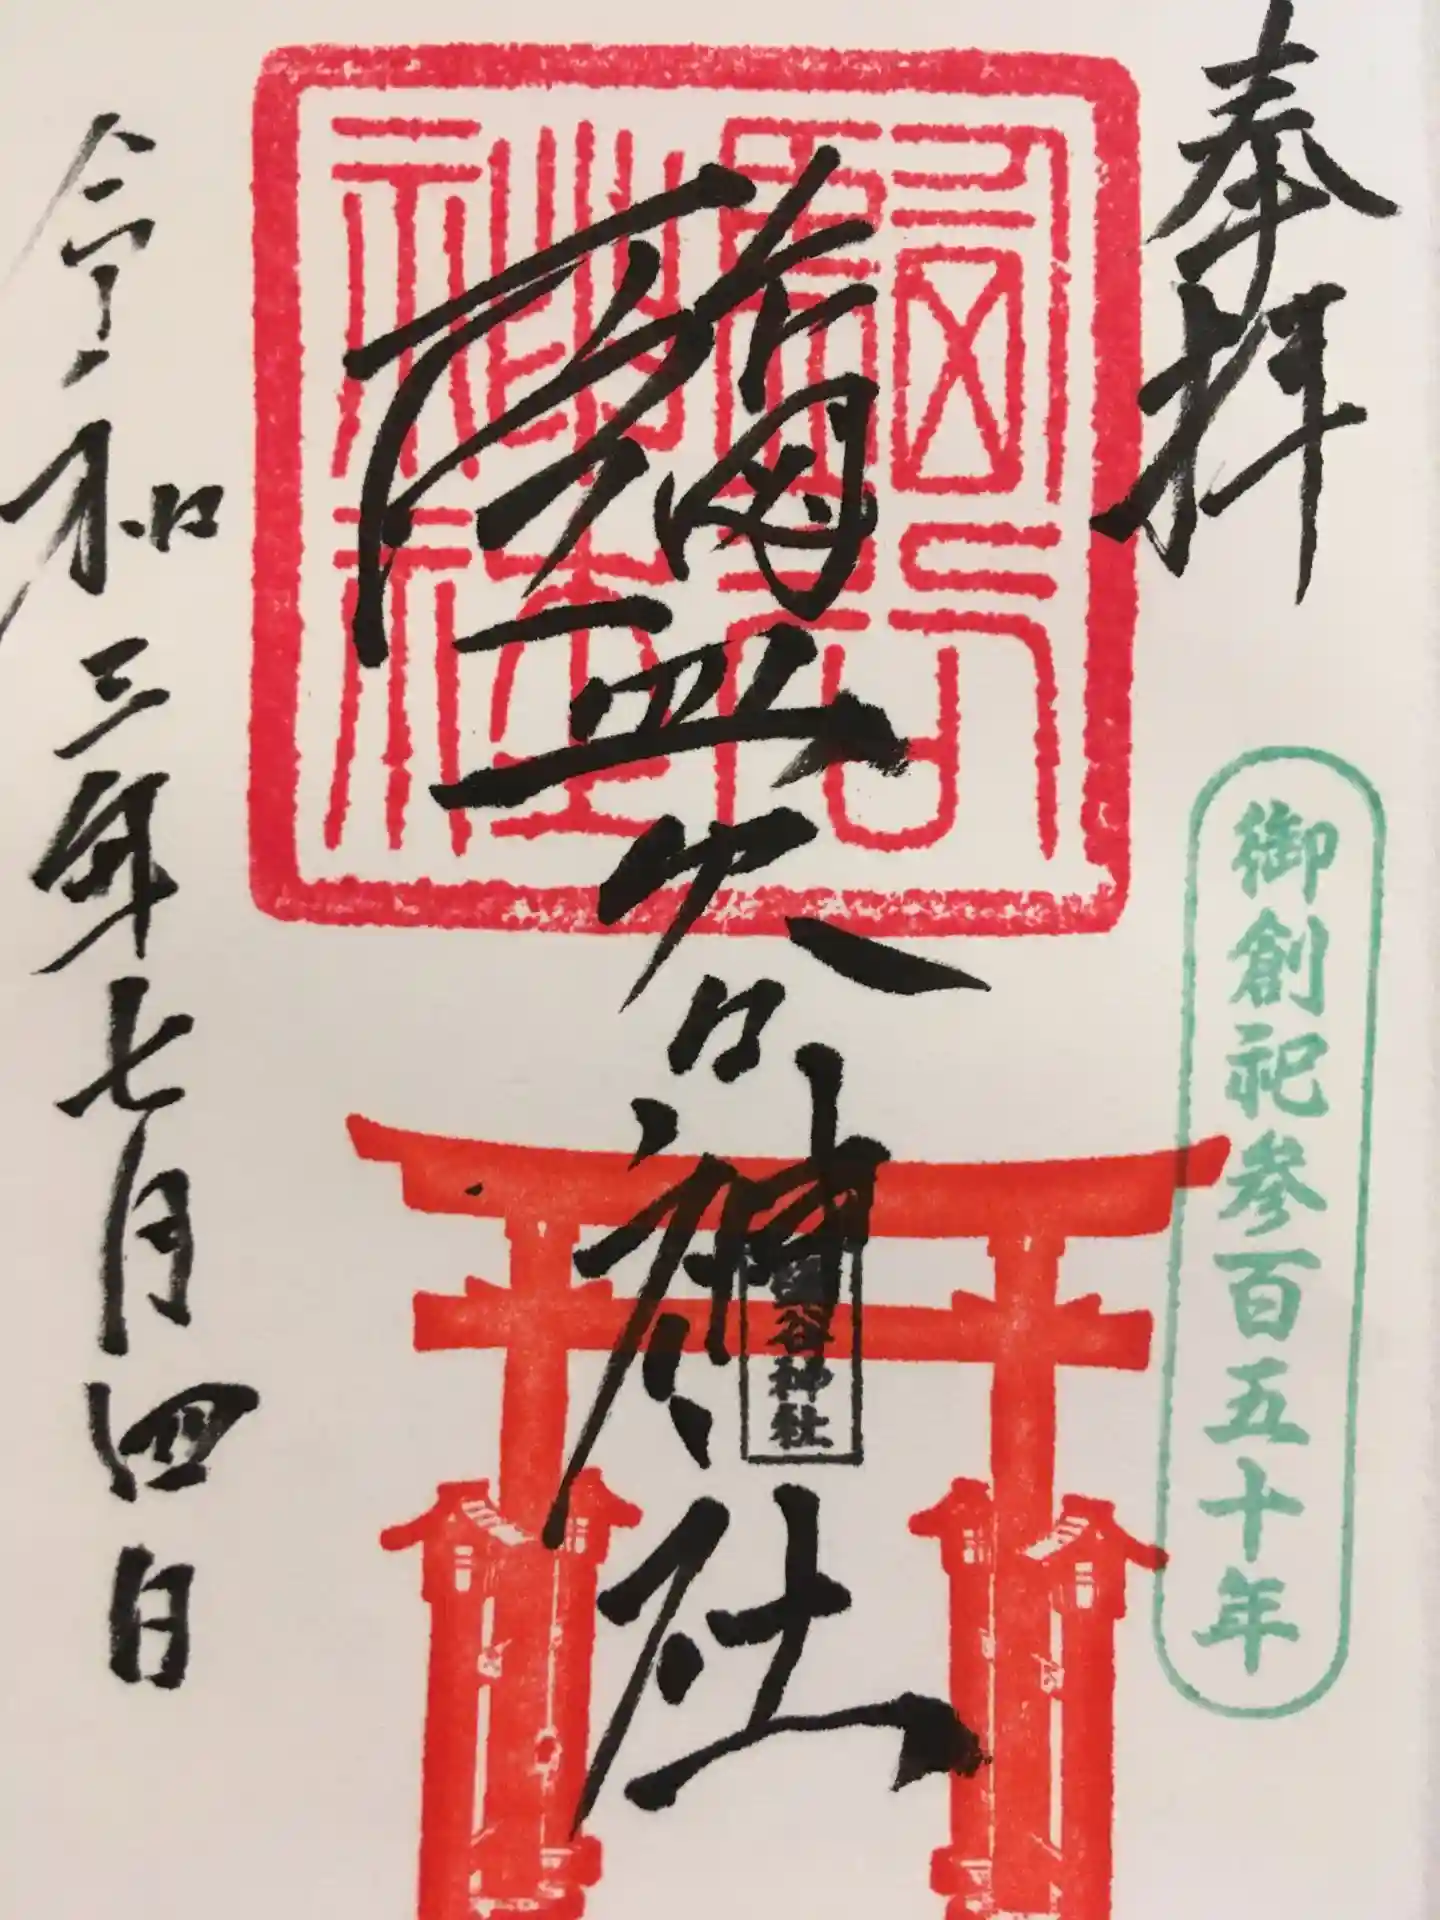 奉拝
御創祀参百五十年
鹽谷神社
鹽谷神社
鹽谷神社
令和三年七月四日